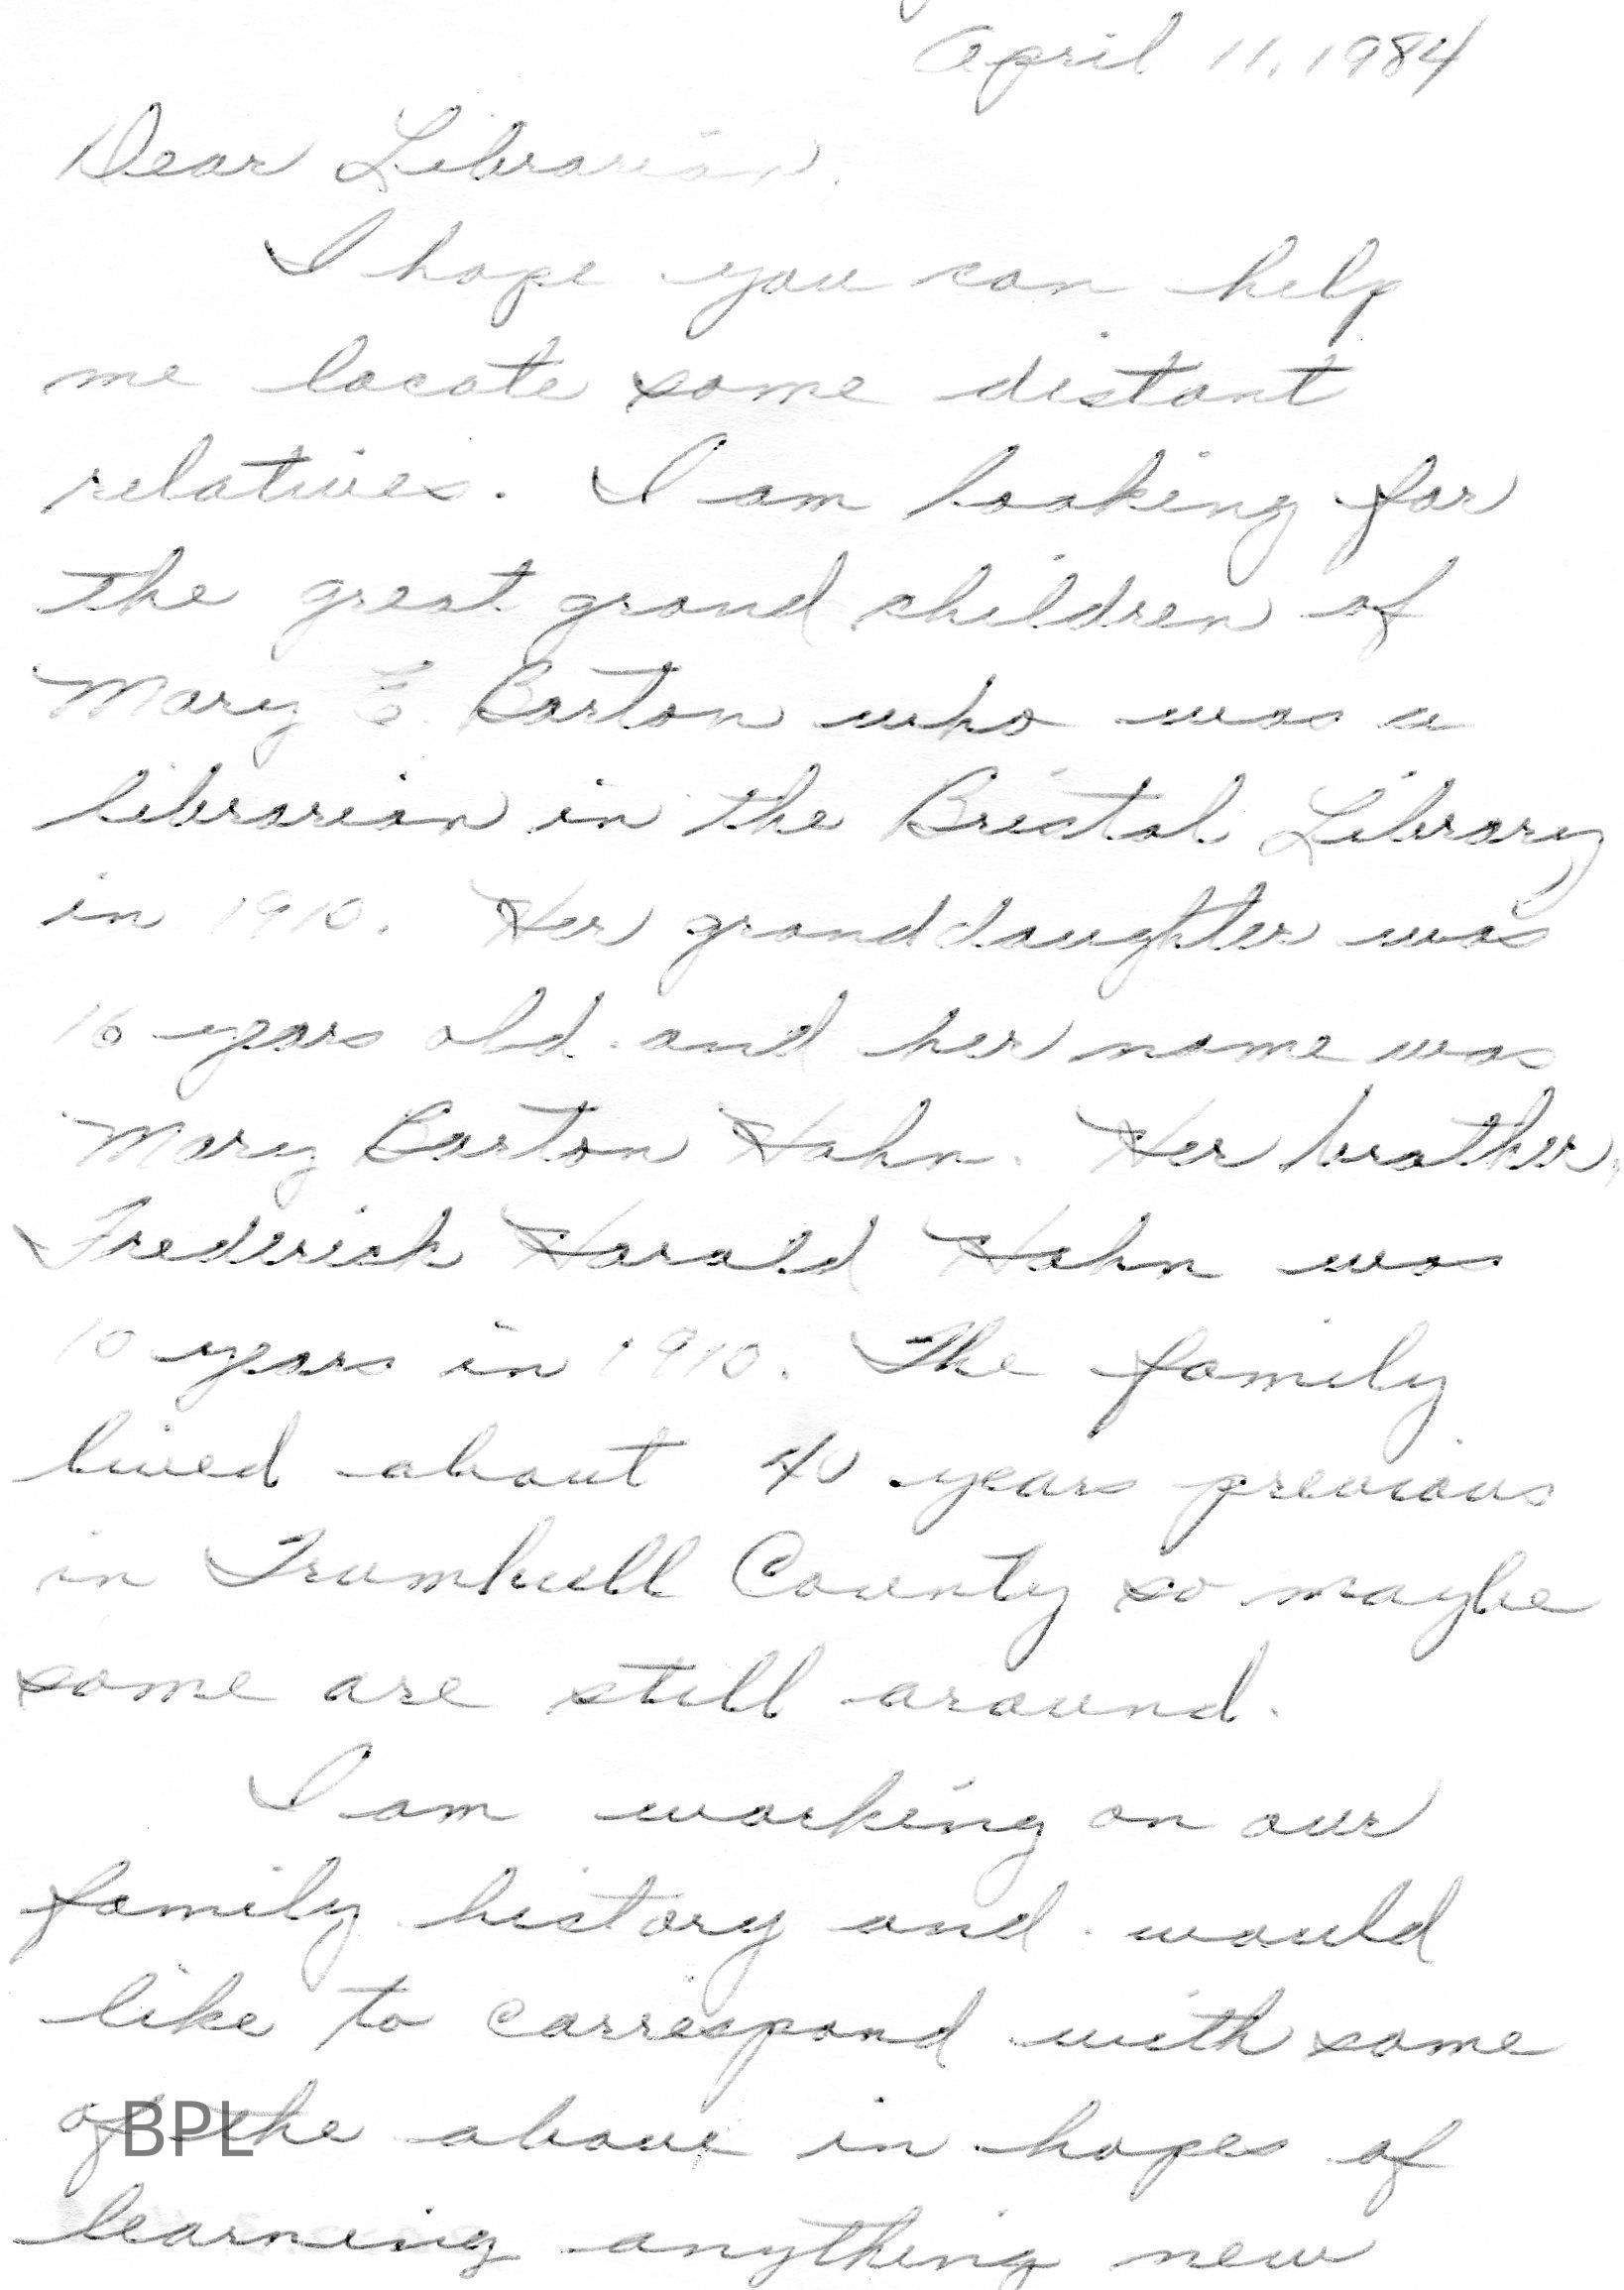 April 11, 1984
Dear Librarian.
I hope you can help
me locate some distant
relatives. I am looking for
the great grand children of
Mary E. Barton who was a
librarian in the Bristol Library
in 1910. Her granddaughter was
16 years old and her name was
Mary Barton Hahn. Her brother,
Frederick Harold Hahn was
10 years in 1910. The family
lived about 40 years previous
in Trumbull County so maybe
some are still around.
I am working on our
family history and would
like to correspond with some
of the above in hopes of
BPL
learning anything new